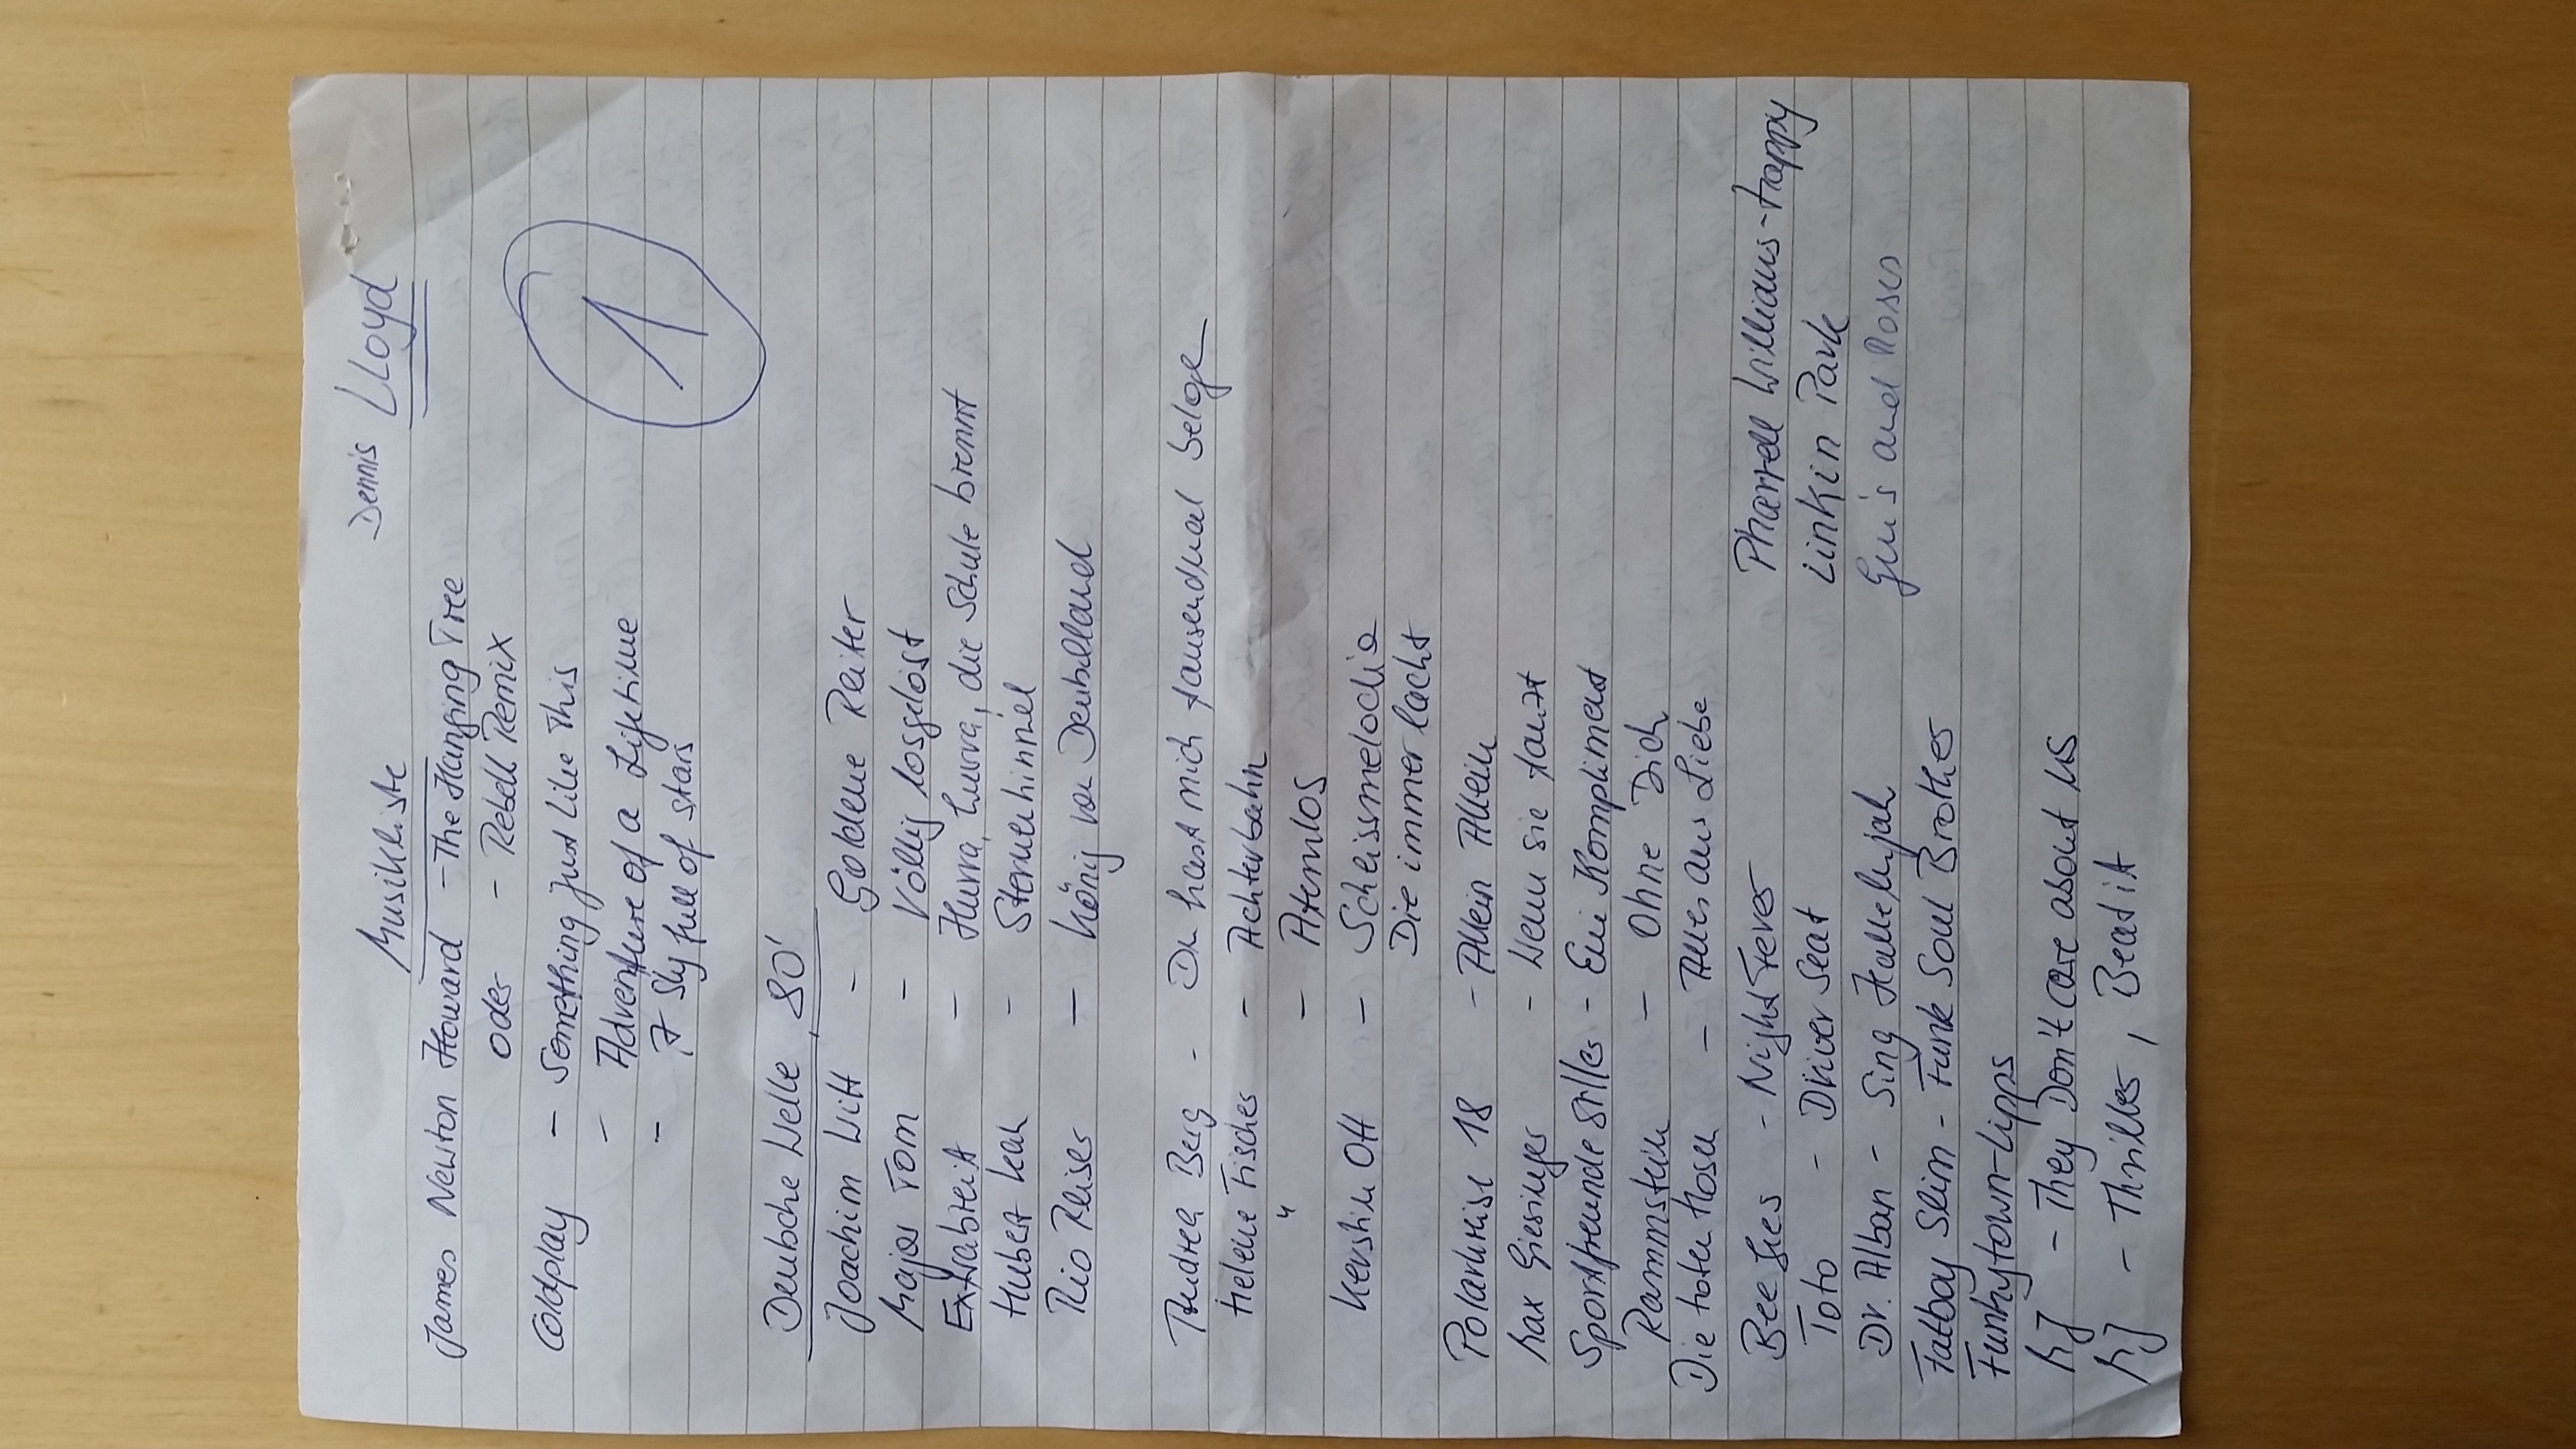 Musikliste
Dennis Lloyd
James Newton Howard - The Hanging Tree
oder - Rebell Remix
1
Coldplay - Something just Like This
- Adventure of a Lifetime
- A Sky full of stars
Deutsche Welle, 80'
Joachim Witt - Goldene Reiter
Major Tom - Völlig losgelöst
Extrabreit - Hurra, hurra, die Schule brennt
Hubert Kah - Sternenhimmel
Rio Reiser - König von Deutschland
Andrea Berg - Du hast mich tausendmal belogen
Helene Fischer - Achterbahn
" - Atemlos
Kerstin Ott - Scheissmelodie
Die immer lacht
Polarkreise 18 - Allein Allein
Max Giesinger - Wenn sie tanzt
Sportfreunde Stiller - Ein Kompliment
Rammstein - Ohne Dich
Die toten Hosen - Alles aus Liebe
Bee Gees - Night Fever
Pharrell Williams - happy
Toto - Driver Seat
Linkin Park
Dr. Alban - Sing Hallelujah
Gun's and Roses
Fatboy Slim - Funk Soul Brother
Funkytown - Lipps
MJ - They Don't care about us
MJ - Thriller, Beat it